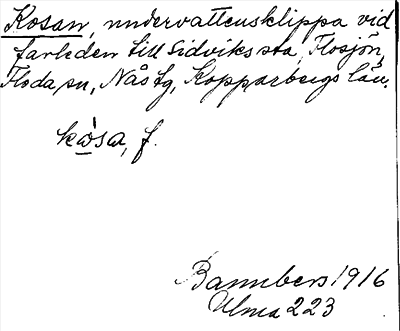 Kosan, undervattensklippa vid
farleden till Sidviks sta, Flosjön,
Floda sn, Nås tg, Kopparbergs län.
kòsa, f.
Bannbers 1916
Ulma 223